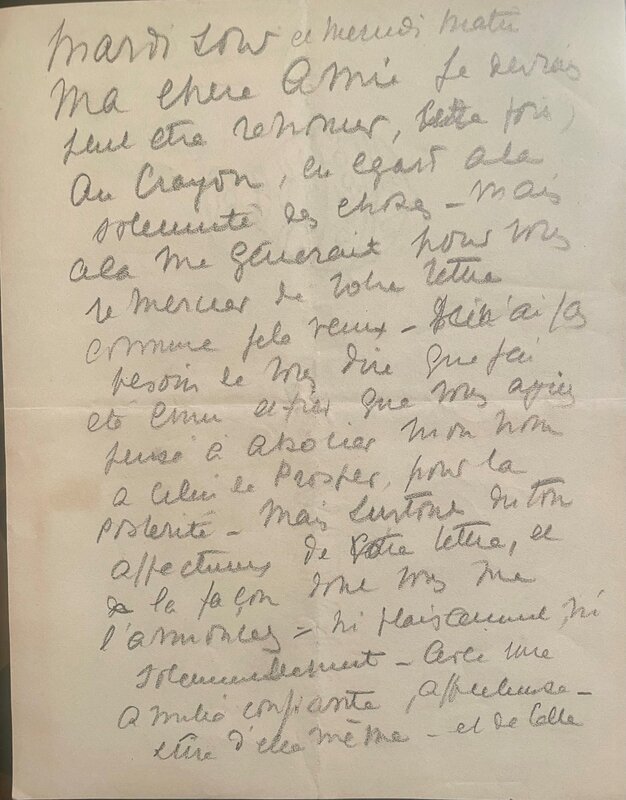 Mardi soir et mercredi matin
Ma chère Amie Je devrais
peut être renoncer, cette fois,
au Crayon, eu egard a la
solennité des choses - mais
cela me gênerait pour vous
remercier de votre lettre
comme je le veux - Je n'ai pas
besoin de vous dire que j'ai
été ému et fier que vous ayiez
pensé à associer mon nom
a celui de Prosper, pour la
postérité - Mais surtout du ton
affectueux de votre lettre, et
de la façon dont vous me
l'annoncez - ni plaisamment, ni
solennellement - Avec une
amitié confiante, affectueuse -
d'elle même - et de celle